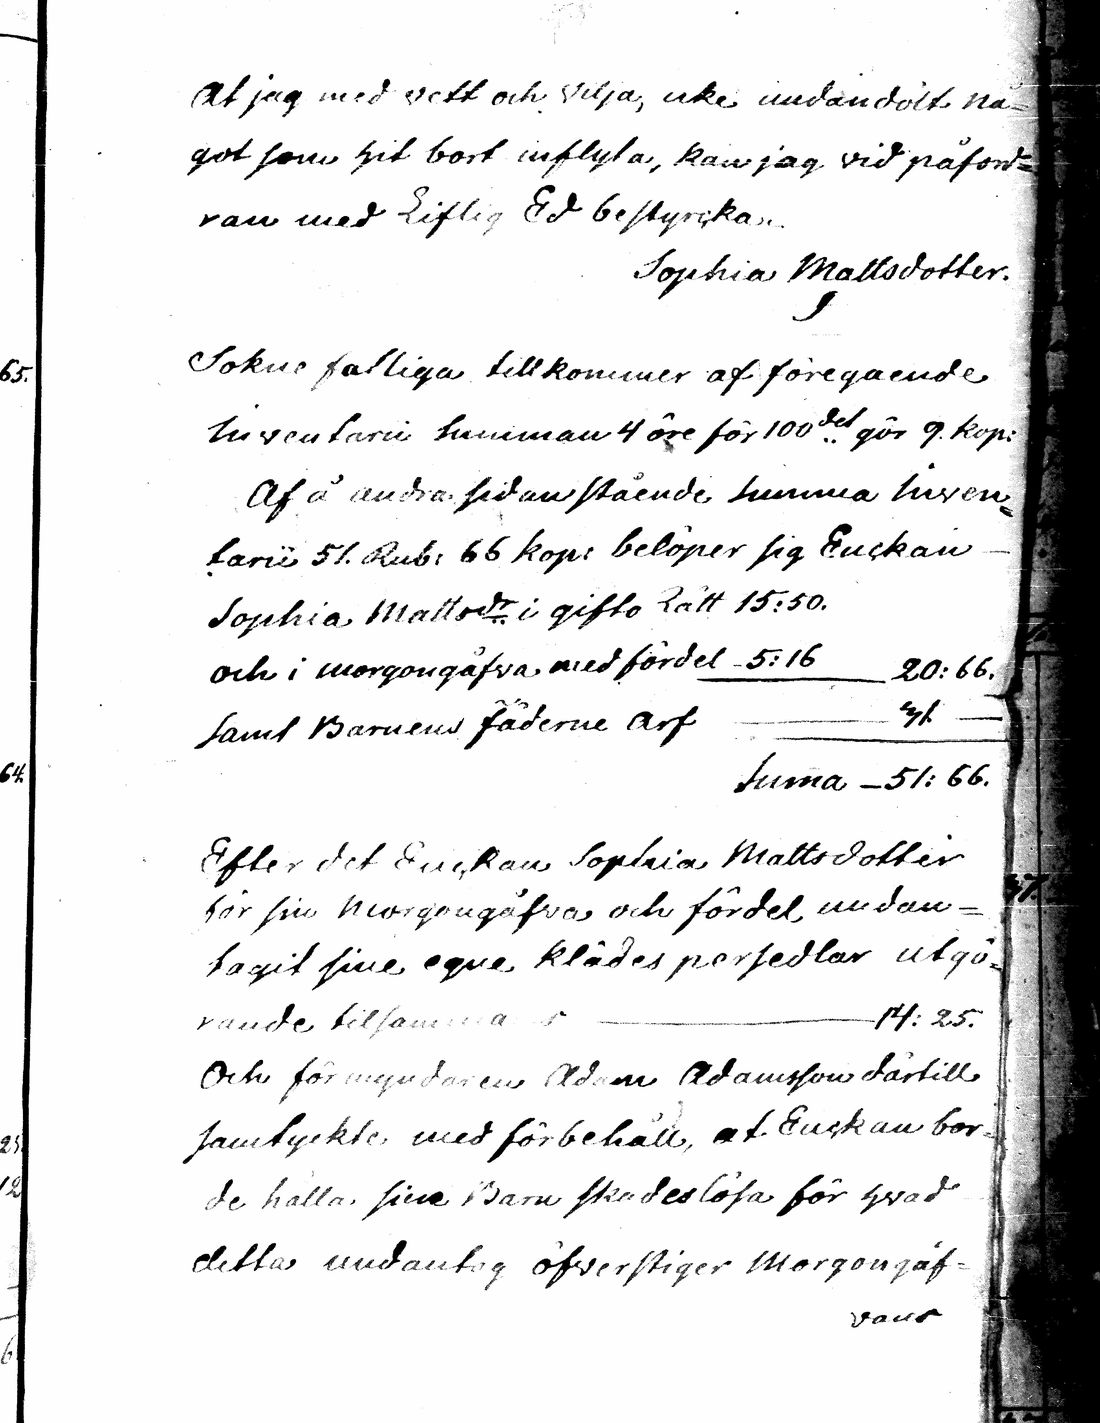 At jag med vett och vilja, icke undandölt nå=
got som hit bort inflyta, kan jag vid påford=
ran med Liflig Ed bestyrcka.
Sophia Mattsdotter.
65.
Sokne fattiga tillkommer af föregaende
Inventarii Summan 4 öre för 100det gör 9. kop:
Af å andra sidan stående Summa Inven=
tarii 51. Rub: 66 kop: belöper sig Enckan
Sophia Mattsdr i gifto Rätt 15:50.
och i morgongåfva med fördel 5:16 20:66.
Samt Barnens Fäderne Arf 31. —
64.
Summa — 51: 66.
Efter det Enckan Sophia Mattsdotter
för sin Morgongåfva och fördel undan=
37.
tagit sine egne klädes persedlar utgö=
rande tilsammans 14: 25.
Och förmyndaren Adam Adamsson därtill
samtyckte med förbehåll, at Enckan bor=
de hålla sine Barn skadeslösa för hvad
12
detta undantag öfverstiger Morgongåf=
vans
6